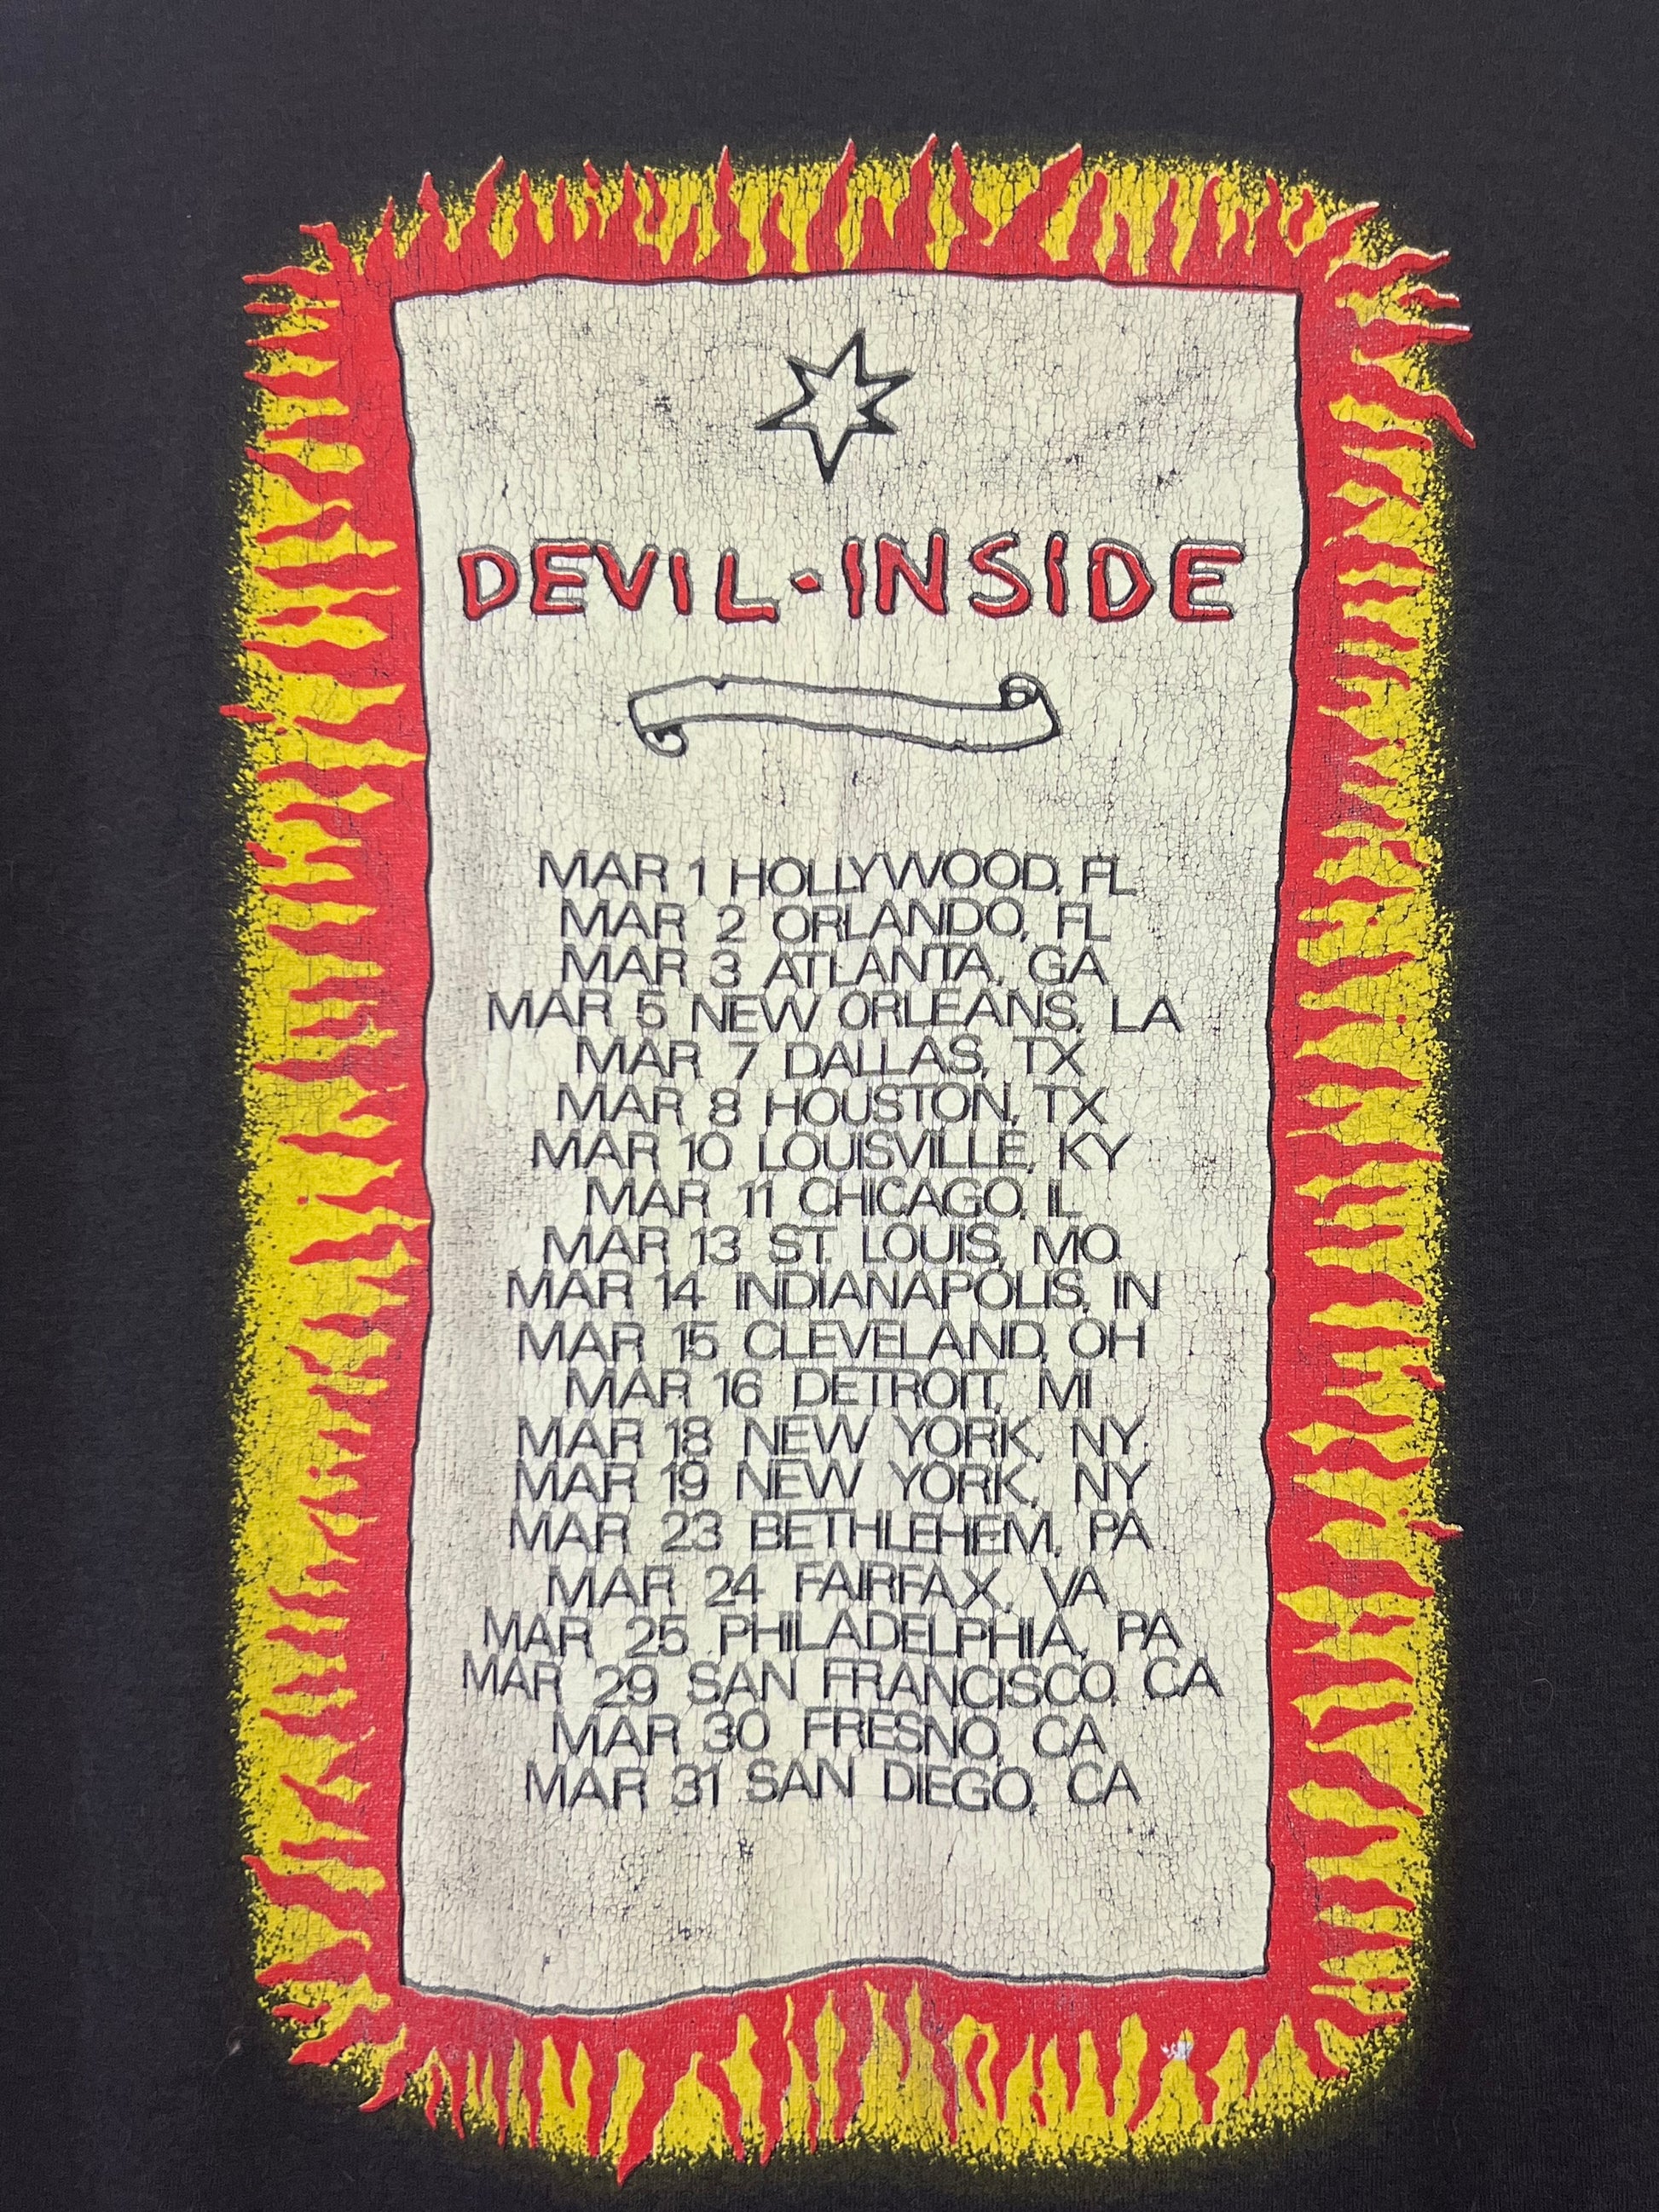 DEVIL·INSIDE
MAR 1 HOLLYWOOD, FL
MAR 2 ORLANDO, FL
MAR 3 ATLANTA, GA
MAR 5 NEW ORLEANS, LA
MAR 7 DALLAS, TX
MAR 8 HOUSTON, TX
MAR 10 LOUISVILLE, KY
MAR 11 CHICAGO, IL
MAR 13 ST. LOUIS, MO
MAR 14 INDIANAPOLIS, IN
MAR 15 CLEVELAND, OH
MAR 16 DETROIT, MI
MAR 18 NEW YORK, NY
MAR 19 NEW YORK, NY
MAR 23 BETHLEHEM, PA
MAR 24 FAIRFAX, VA
MAR 25 PHILADELPHIA, PA
MAR 29 SAN FRANCISCO, CA
MAR 30 FRESNO, CA
MAR 31 SAN DIEGO, CA